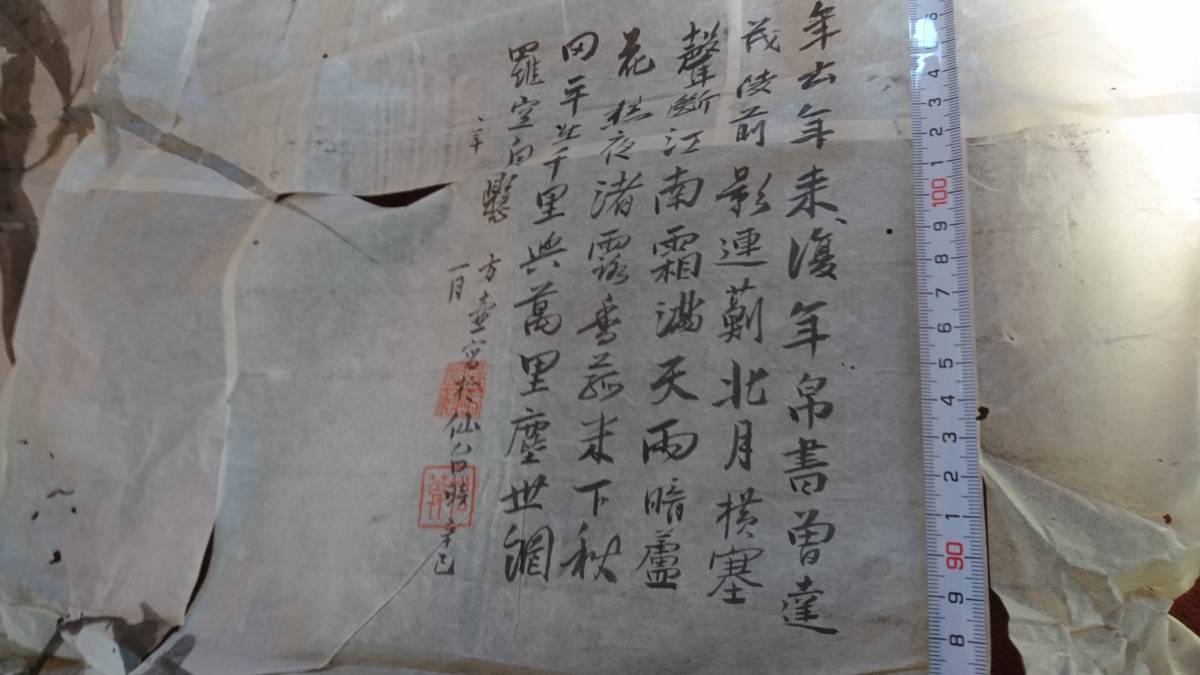 年去年来復年帛書曽達
茂陵前影連薊北月横塞
聲斷江南霜滿天雨暗蘆
花愁夜渚露香菰米下秋
田平生千里與萬里塵世網
羅空自懸
方壷寫於仙
時辛巳
4
3
2
1
100
9
8
7
6
5
4
3
2
1
90
9
8